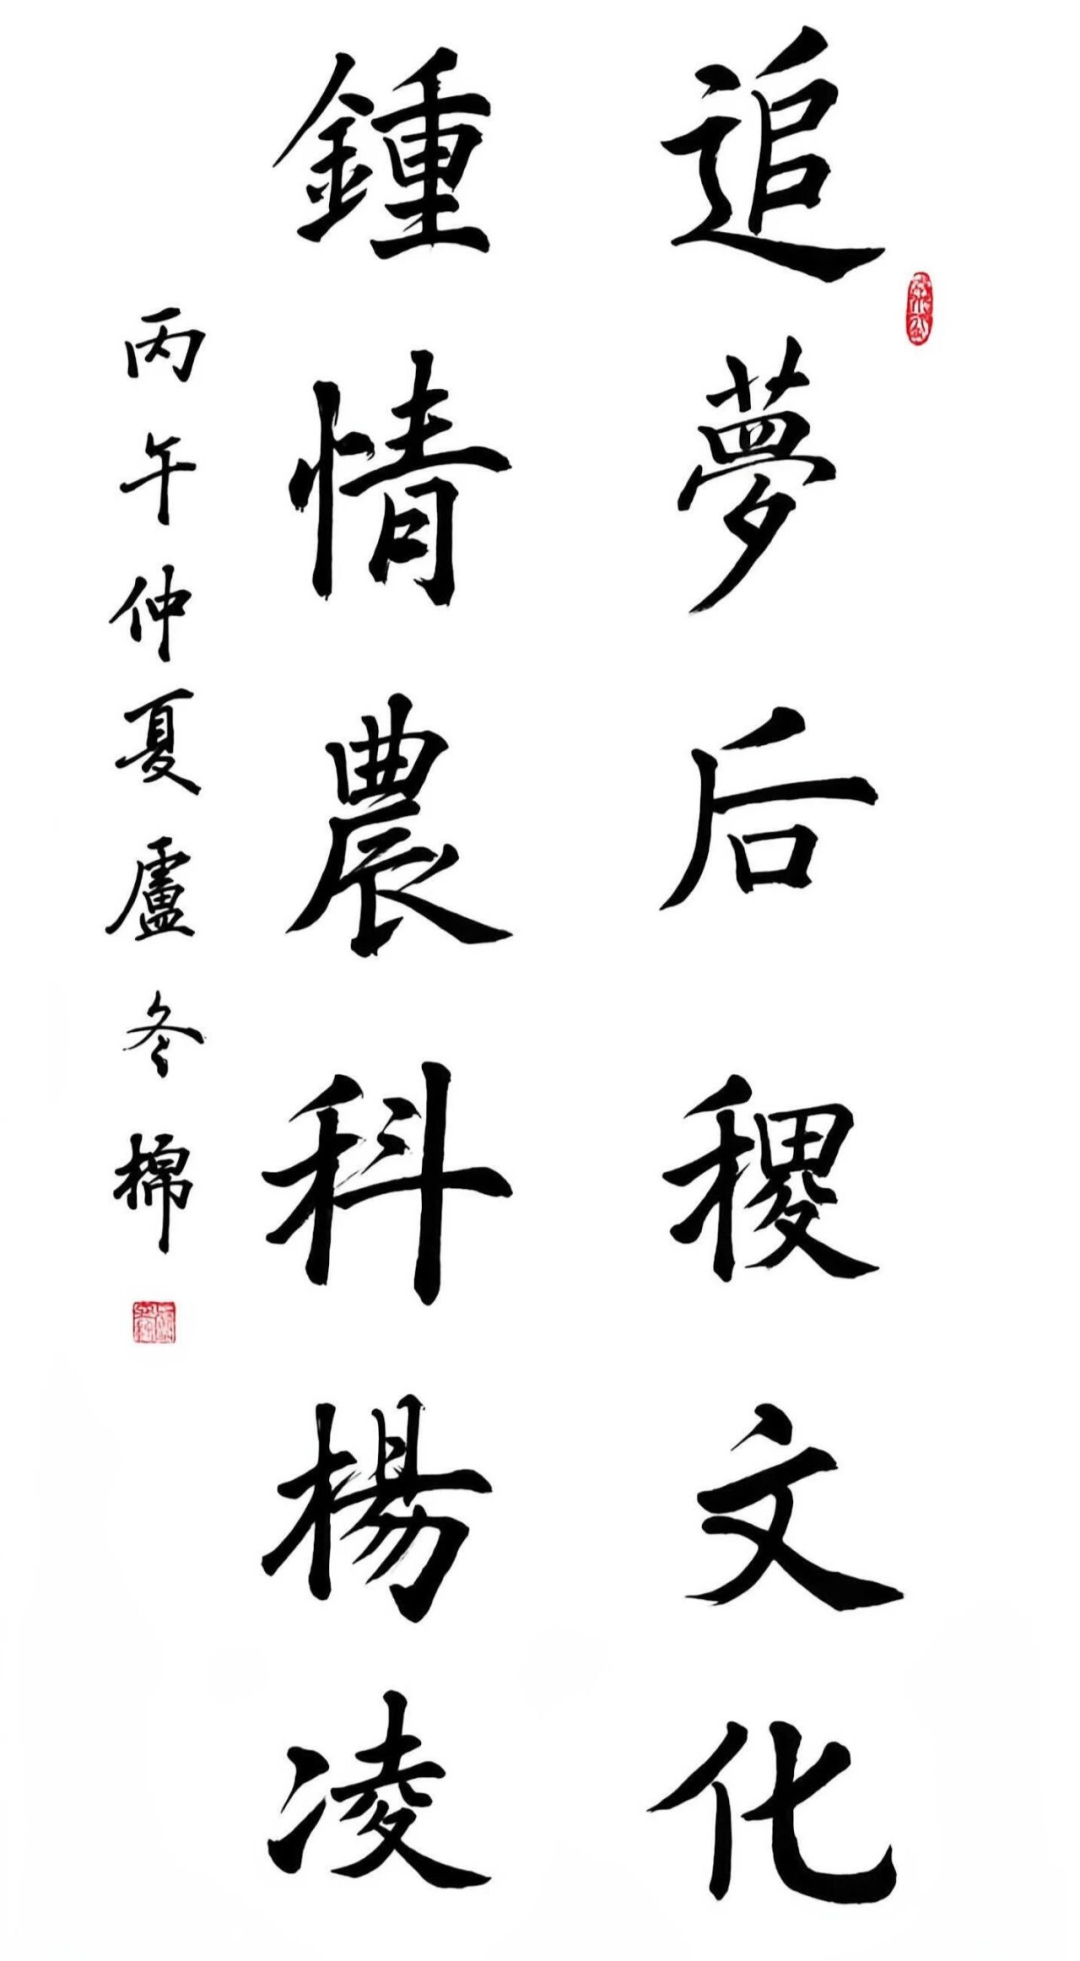 追夢后稷文化
鍾情農科楊凌
丙午仲夏盧冬棉